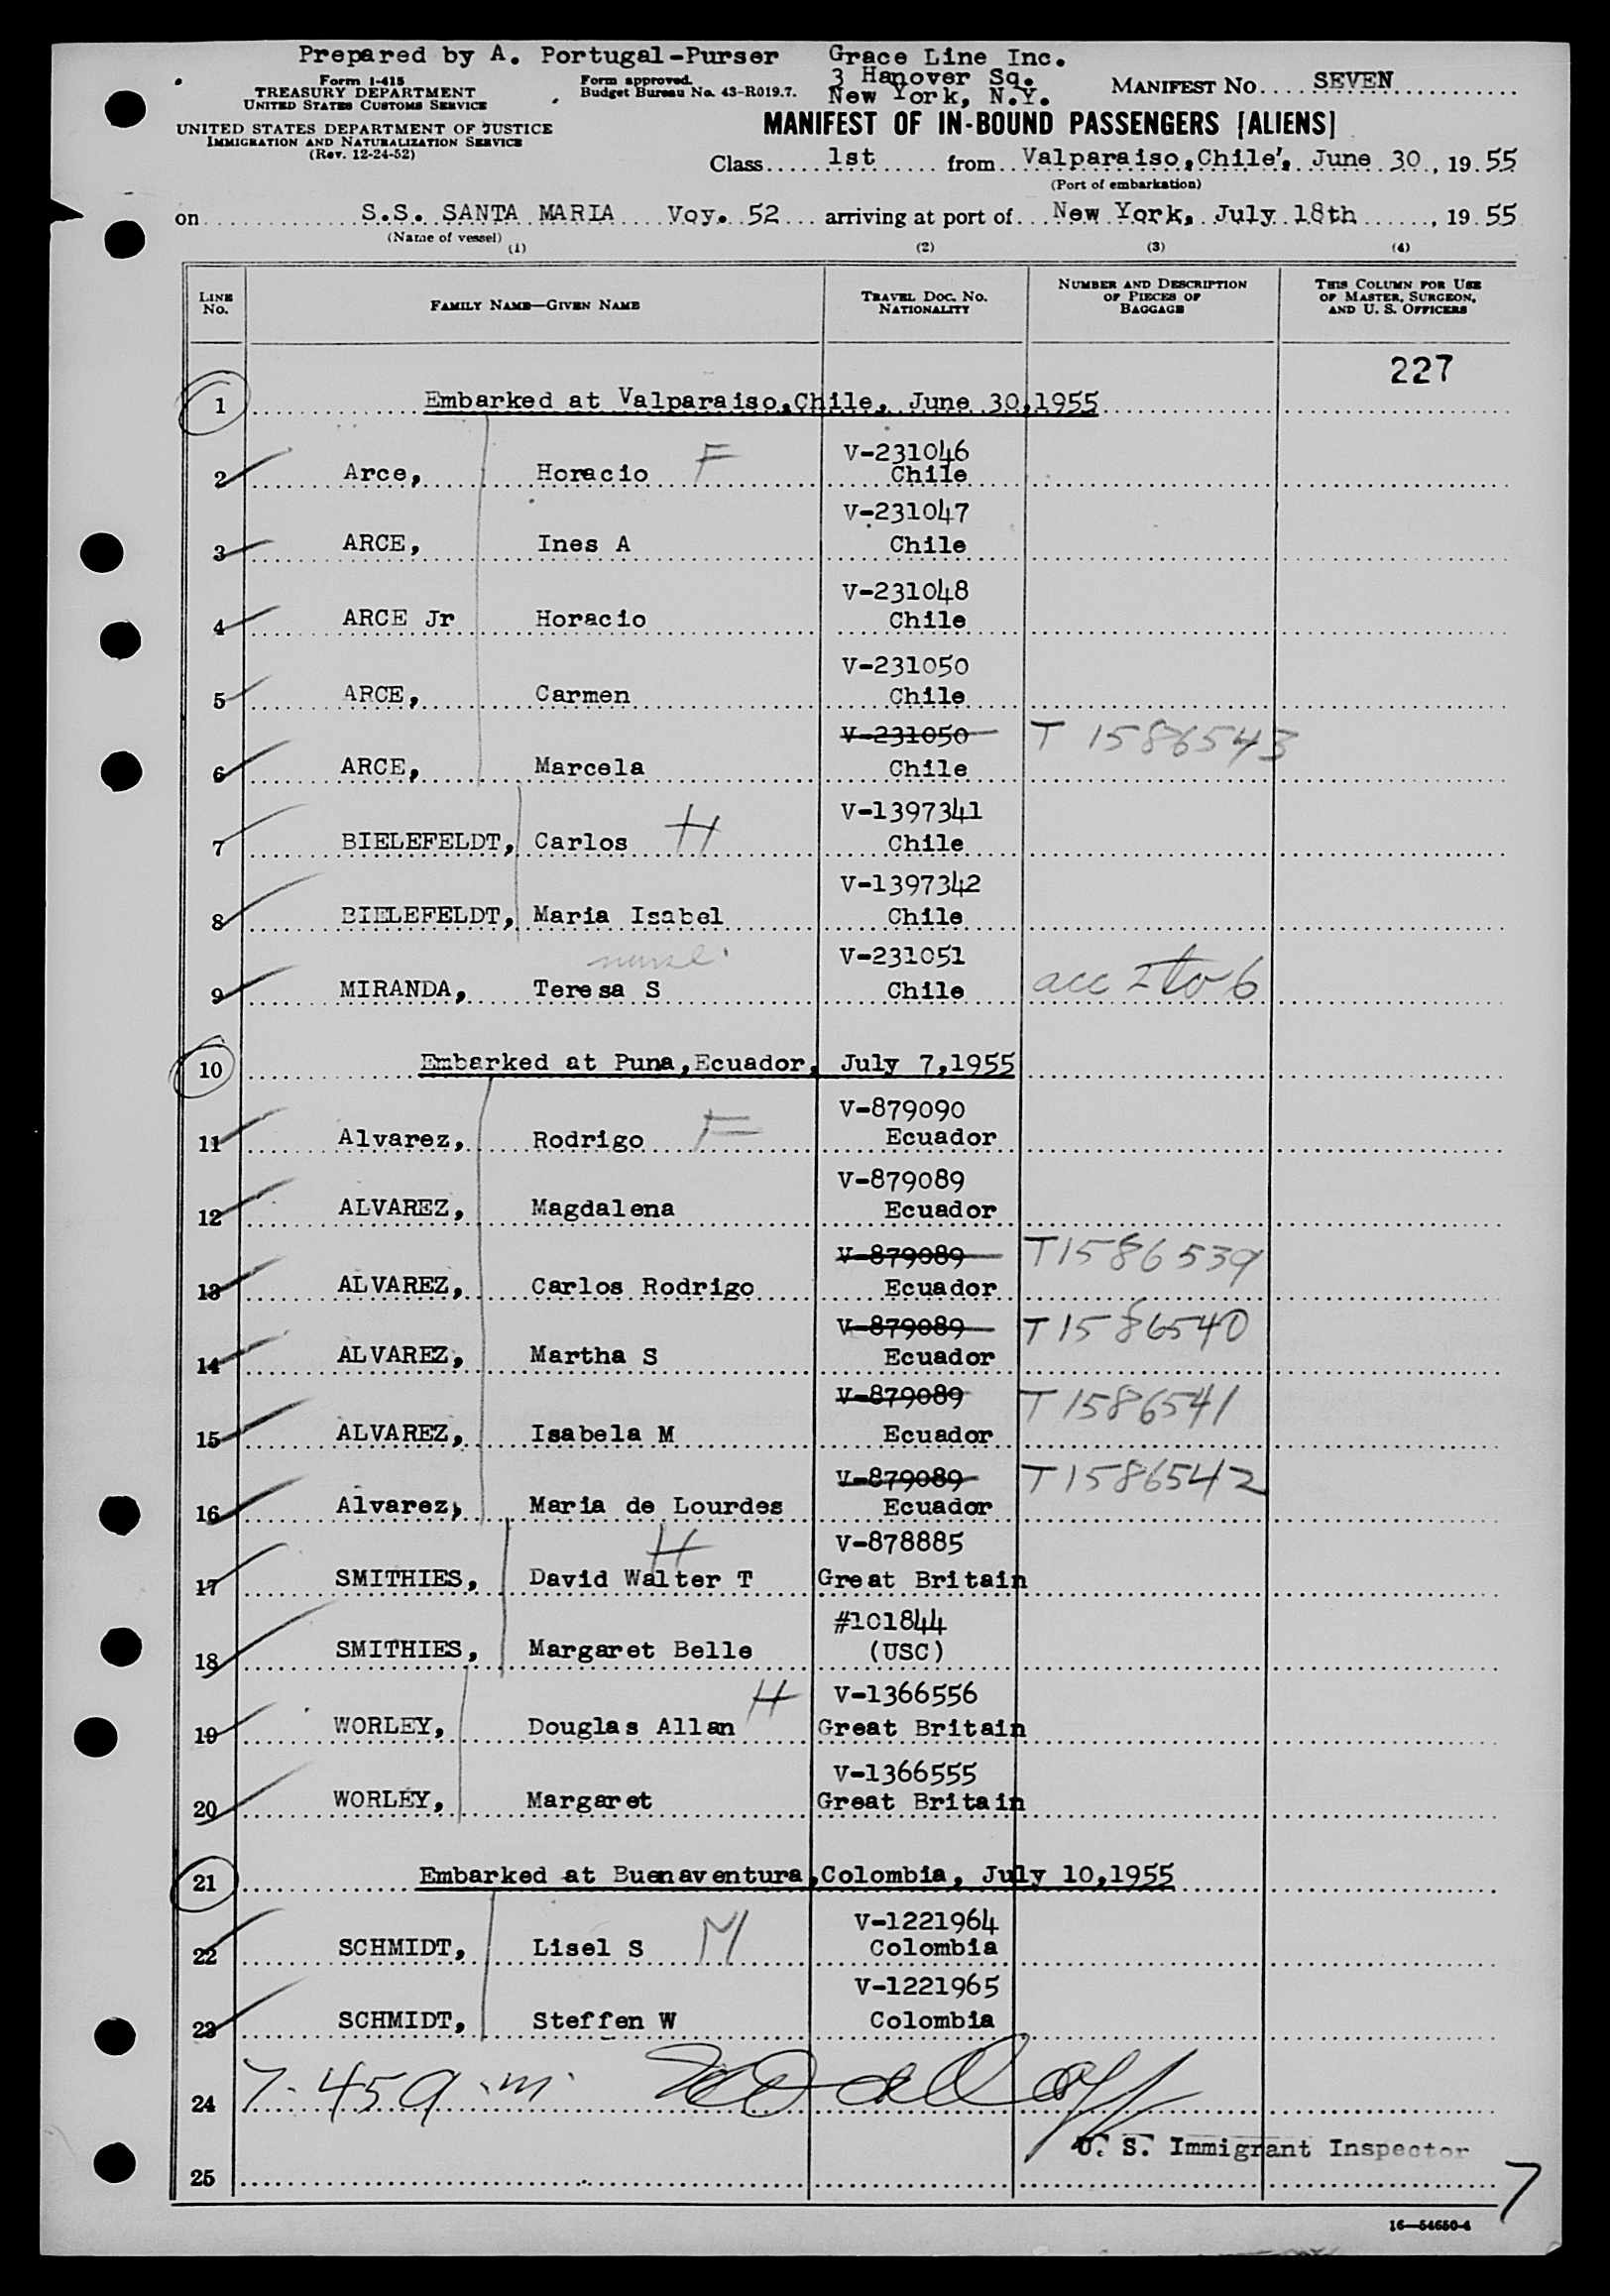 Prepared by A. Portugal-Purser Grace Line Inc.
3 Hanover Sq.
New York, N.Y.
Form I-415
TREASURY DEPARTMENT
UNITED STATES CUSTOMS SERVICE
Form approved.
Budget Bureau No. 43-R019.7.
MANIFEST NO. SEVEN
UNITED STATES DEPARTMENT OF JUSTICE
IMMIGRATION AND NATURALIZATION SERVICE
(Rev. 12-24-52)
MANIFEST OF IN-BOUND PASSENGERS (ALIENS)
Class 1st from Valparaiso, Chile', June 30, 19 55
(Port of embarkation)
on S.S. SANTA MARIA Voy. 52 arriving at port of New York, July 18th, 19 55
(Name of vessel)
(1) (2) (3) (4)
LINE NO. FAMILY NAME—GIVEN NAME TRAVEL DOC. NO. NATIONALITY NUMBER AND DESCRIPTION OF PIECES OF BAGGAGE THIS COLUMN FOR USE OF MASTER, SURGEON, AND U. S. OFFICERS
227
1 Embarked at Valparaiso,Chile, June 30,1955
V-231046
2 Arce, Horacio F Chile
V-231047
3 ARCE, Ines A Chile
V-231048
4 ARCE Jr Horacio Chile
V-231050
5 ARCE, Carmen Chile
V-231050 T 1586543
6 ARCE, Marcela Chile
V-1397341
7 BIELEFELDT, Carlos H Chile
V-1397342
8 BIELEFELDT, Maria Isabel Chile
nurse. V-231051
9 MIRANDA, Teresa S Chile acc 2 to 6
10 Embarked at Puna,Ecuador, July 7,1955
V-879090
11 Alvarez, Rodrigo F Ecuador
V-879089
12 ALVAREZ, Magdalena Ecuador
V-879089 T1586539
13 ALVAREZ, Carlos Rodrigo Ecuador
V-879089 T1586540
14 ALVAREZ, Martha S Ecuador
V-879089 T1586541
15 ALVAREZ, Isabela M Ecuador
V-879089 T1586542
16 Alvarez, Maria de Lourdes Ecuador
H V-878885
17 SMITHIES, David Walter T Great Britain
#101844
18 SMITHIES, Margaret Belle (USC)
V-1366556
19 WORLEY, Douglas Allan H Great Britain
V-1366555
20 WORLEY, Margaret Great Britain
21 Embarked at Buenaventura,Colombia, July 10,1955
V-1221964
22 SCHMIDT, Lisel S M Colombia
V-1221965
23 SCHMIDT, Steffen W Colombia
24 7.45 a.m.
U. S. Immigrant Inspector
25
7
16—54650-4